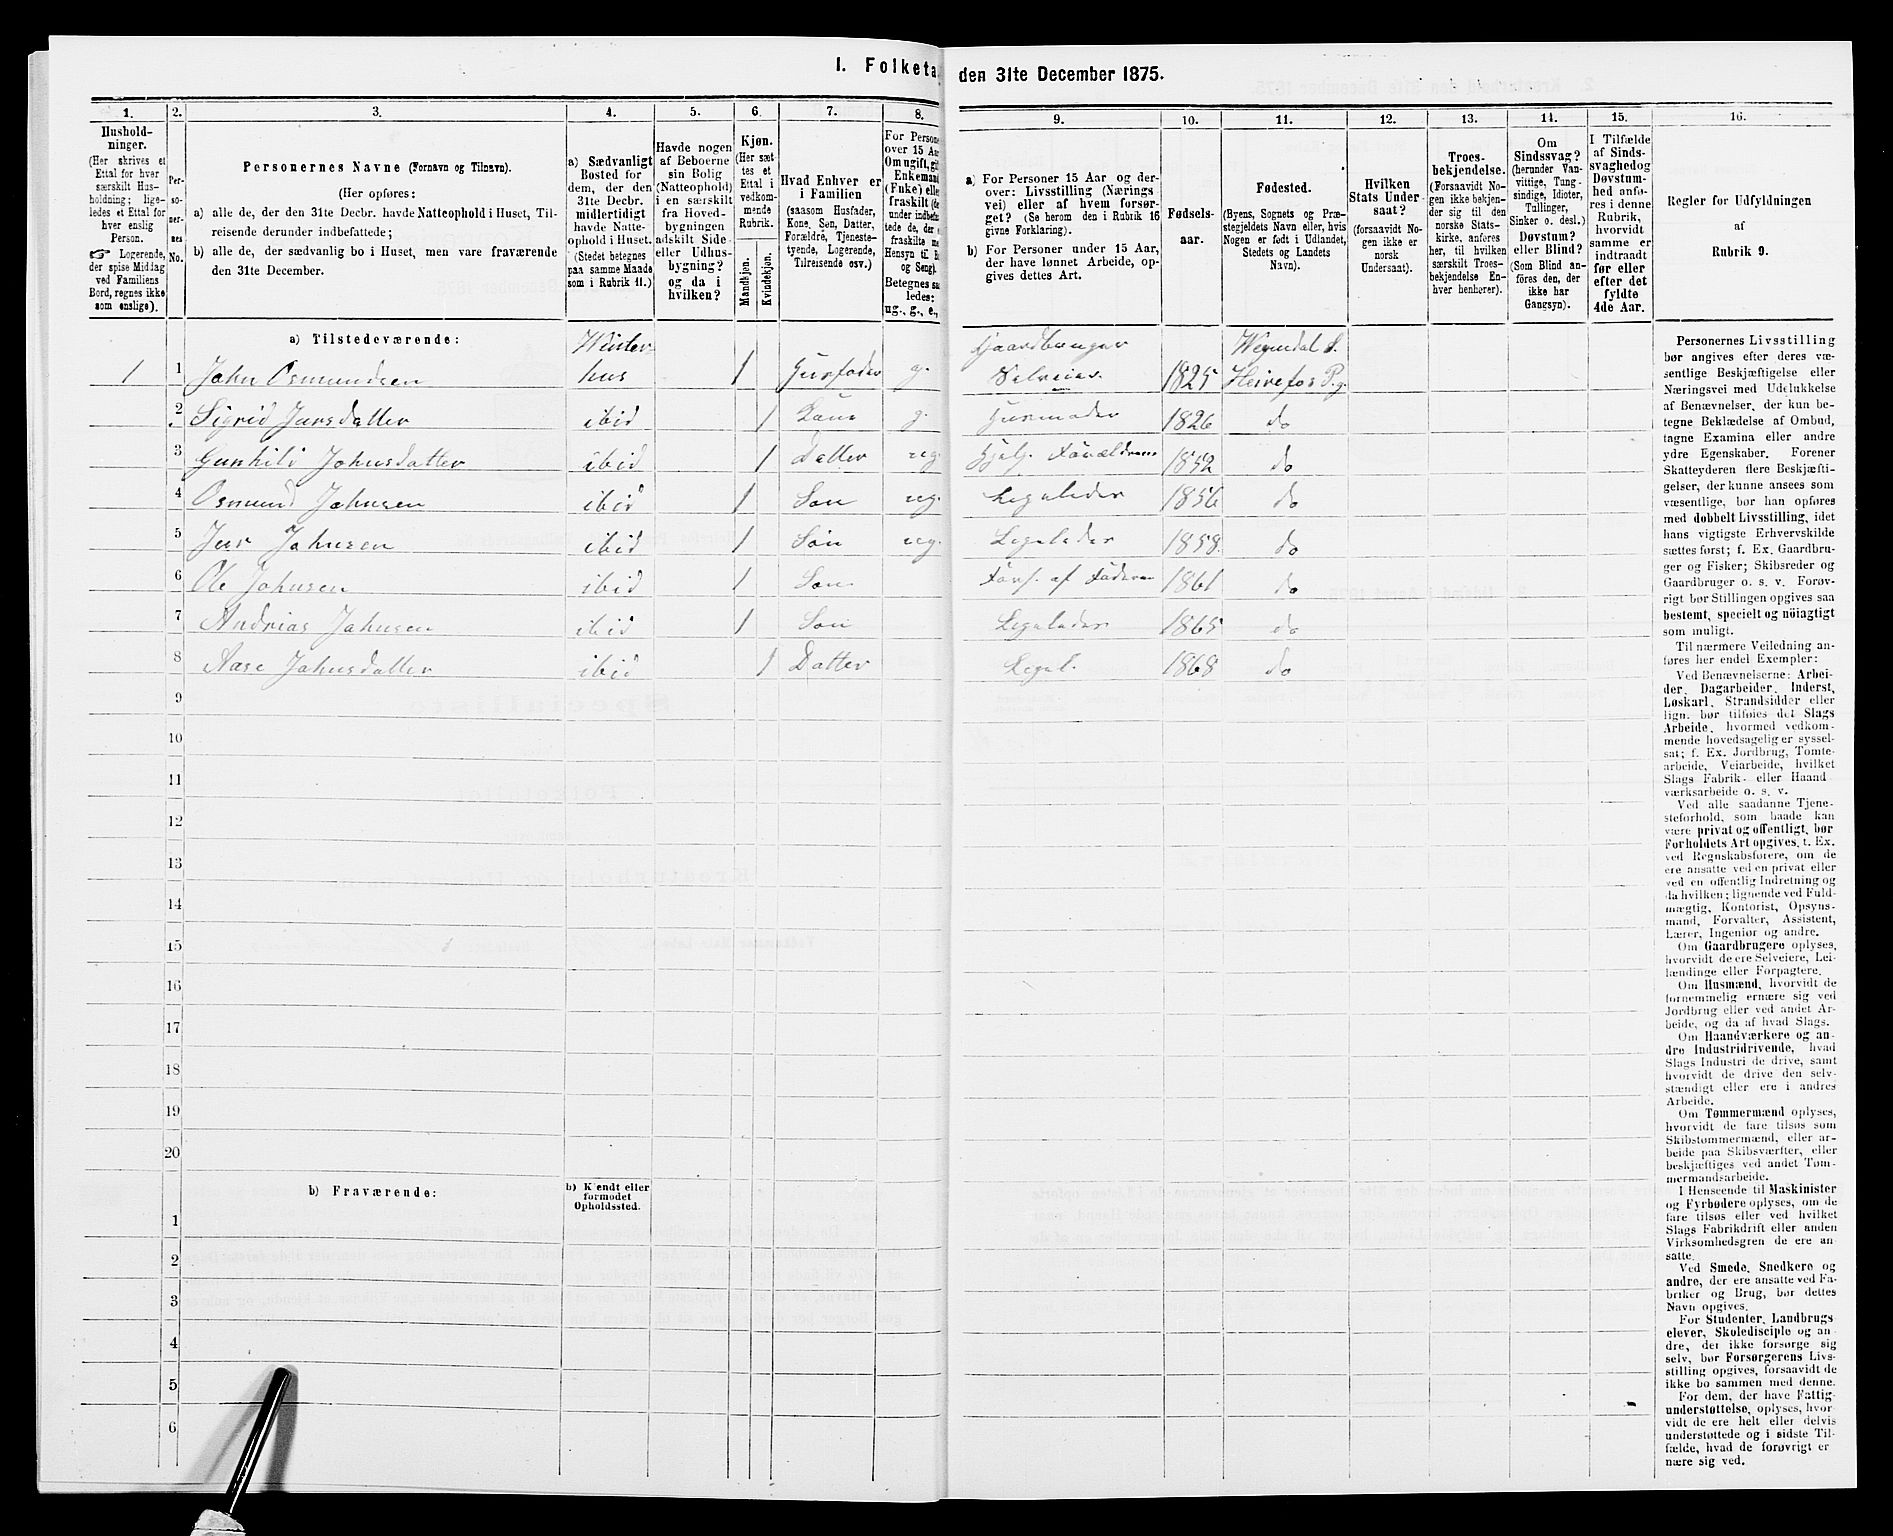 I. Folketæ
den 31te December 1875.
1.
Hushold-
ninger.
(Her skrives et
Ettal for hver
særskilt Hus-
holdning; lige-
ledes et Ettal for
hver enslig
Person.
Logerende,
der spise Middag
ved Familiens
Bord, regnes ikke
som enslige).
2.
Per-
so-
ner-
nes
No.
3.
Personernes Navne (Fornavn og Tilnavn).
(Her opføres:
a) alle de, der den 31te Decbr. havde Natteophold i Huset, Til-
reisende derunder indbefattede;
b) alle de, der sædvanlig bo i Huset, men vare fraværende
den 31te December.
4.
a) Sædvanligt
Bosted for
dem, der den
31te Decbr.
midlertidigt
havde Natte-
ophold i Huset.
(Stedet betegnes
paa samme Maade
som i Rubrik 11.)
5.
Havde nogen
af Beboerne
sin Bolig
(Natteophold)
i en særskilt
fra Hoved-
bygningen
adskilt Side-
eller Udhus-
bygning?
og da i
hvilken?
6.
Kjøn.
(Her sæt-
tes et
Ettal i
vedkom-
mende
Rubrik.
Mandkjøn.
Kvindekjøn.
7.
Hvad Enhver er
i Familien
(saasom Husfader,
Kone, Søn, Datter,
Forældre, Tjeneste-
tyende, Logerende,
Tilreisende osv.)
8.
For Persone
over 15 Aar
Om ugift, gif
Enkemand
(Enke) elle
fraskilt (de
under indbefat
tede de, der e
fraskilte me
Hensyn til B
og Seng).
Betegnes saa
ledes:
ug., g., e.,
9.
a) For Personer 15 Aar og der-
over: Livsstilling (Nærings
vei) eller af hvem forsør-
get? (Se herom den i Rubrik 16
givne Forklaring).
b) For Personer under 15 Aar,
der have lønnet Arbeide, op-
gives dettes Art.
10.
Fødsels-
aar.
11.
Fødested.
(Byens, Sognets og Præ-
stegjeldets Navn eller, hvis
Nogen er født i Udlandet,
Stedets og Landets
Navn).
12.
Hvilken
Stats Under
saat?
(forsaavidt No-
gen ikke er
norsk
Undersaat).
13.
Troes-
bekjendelse.
(Forsaavidt No-
gen ikke bekjen-
der sig til den
norske Stats-
kirke, anføres
her, til hvilken
særskilt Troes-
bekjendelse En-
hver henhører).
14.
Om
Sindssvag?
(herunder Van-
vittige, Tung-
sindige, Idioter,
Tullinger,
Sinker o. desl.)
Døvstum?
eller Blind?
(Som Blind an-
føres den, der
ikke har
Gangsyn).
15.
I Tilfælde
af Sinds-
svaghedog
Døvstum-
hed anfø-
res i denne
Rubrik,
hvorvidt
samme er
indtraadt
før eller
efter det
fyldte
4de Aar.
16.
Regler for Udfyldningen
af
Rubrik 9.
a) Tilstedeværende:
1 1 John Osmundsen Winterhus 1 Husfader g. Gaardbruger Selveier. 1825 Wegusdal S. Heirefos Pg.
2 Sigrid Jursdatter ibid 1 Kone g. Husmoder 1826 do
3 Gunhild Johnsdatter ibid 1 Datter ug. Hjelp. Forældrene 1852 do
4 Osmund Johnsen ibid 1 Søn ug. Ligeledes 1856 do
5 Jur Johnsen ibid 1 Søn ug. Ligeledes 1858 do
6 Ole Johnsen ibid 1 Søn Fors. af Faderen 1861 do
7 Andrias Johnsen ibid 1 Søn Ligeledes 1865 do
8 Aase Johnsdatter ibid 1 Datter Ligel. 1868 do
9
10
11
12
13
14
15
16
17
18
19
20
b) Fraværende:
b) Kjendt eller
formodet
Opholdssted.
1
2
3
4
5
6
Personernes Livsstilling
bør angives efter deres væ-
sentlige Beskjæftigelse eller
Næringsvei med Udelukkelse
af Benævnelser, der kun be-
tegne Beklædelse af Ombud,
tagne Examina eller andre
ydre Egenskaber. Forener
Skatteyderen flere Beskjæfti-
gelser, der kunne ansees som
væsentlige, bør han opføres
med dobbelt Livsstilling, idet
hans vigtigste Erhvervskilde
sættes først; f. Ex. Gaardbru-
ger og Fisker; Skibsreder og
Gaardbruger o. s. v. Forøv-
rigt bør Stillingen opgives saa
bestemt, specielt og nöiagtigt
som muligt.
Til nærmere Veiledning an-
føres her endel Exempler:
Ved Benævnelserne: Arbei-
der, Dagarbeider, Inderst,
Løskarl, Strandsidder eller
lign. bør tilføies det Slags
Arbeide, hvormed vedkom-
mende hovedsagelig er syssel-
sat; f. Ex. Jordbrug, Tomte-
arbeide, Veiarbeide, hvilket
Slags Fabrik- eller Haand
værksarbeide o. s. v.
Ved alle saadanne Tjene-
steforhold, som baade kan
være privat og offentligt, bør
Forholdets Art opgives. t. Ex.
ved Regnskabsførere, om de
ere ansatte ved en privat eller
ved en offentlig Indretning og
da hvilken; lignende ved Fuld-
mægtig, Kontorist, Opsyns-
mand, Forvalter, Assistent,
Lærer, Ingeniør og andre.
Om Gaardbrugere oplyses,
hvorvidt de ere Selveiere, Lei-
lændinge eller Forpagtere.
Om Husmænd, hvorvidt de
fornemmelig ernære sig ved
Jordbrug eller ved andet Ar-
beide, og da af hvad Slags.
Om Haandværkere og an-
dre Industridrivende, hvad
Slags Industri de drive, samt
hvorvidt de drive den selv-
stændigt eller ere i andres
Arbeide.
Om Tømmermænd oplyses,
hvorvidt de fare tilsøs som
Skibstømmermænd, eller ar-
beide paa Skibsværfter, eller
beskjæftiges ved andet Tøm-
mermandsarbeide.
I Henseende til Maskinister
og Fyrbødere oplyses, om de
fare tilsøs eller ved hvilket
Slags Fabrikdrift eller anden
Virksomhedsgren de ere an-
satte.
Ved Smede, Snedkere og
andre, der ere ansatte ved Fa-
briker og Brug, bør dettes
Navn opgives.
For Studenter, Landbrugs-
elever, Skoledisciple og an-
dre, der ikke forsørge sig
selv, bør Forsørgerens Livs-
stilling opgives, forsaavidt de
ikke bo sammen med denne.
For dem, der have Fattig-
understøttelse, oplyses, hvor-
vidt de ere helt eller delvis
understøttede og i sidste Til-
fælde, hvad de forøvrigt er
nære sig ved.